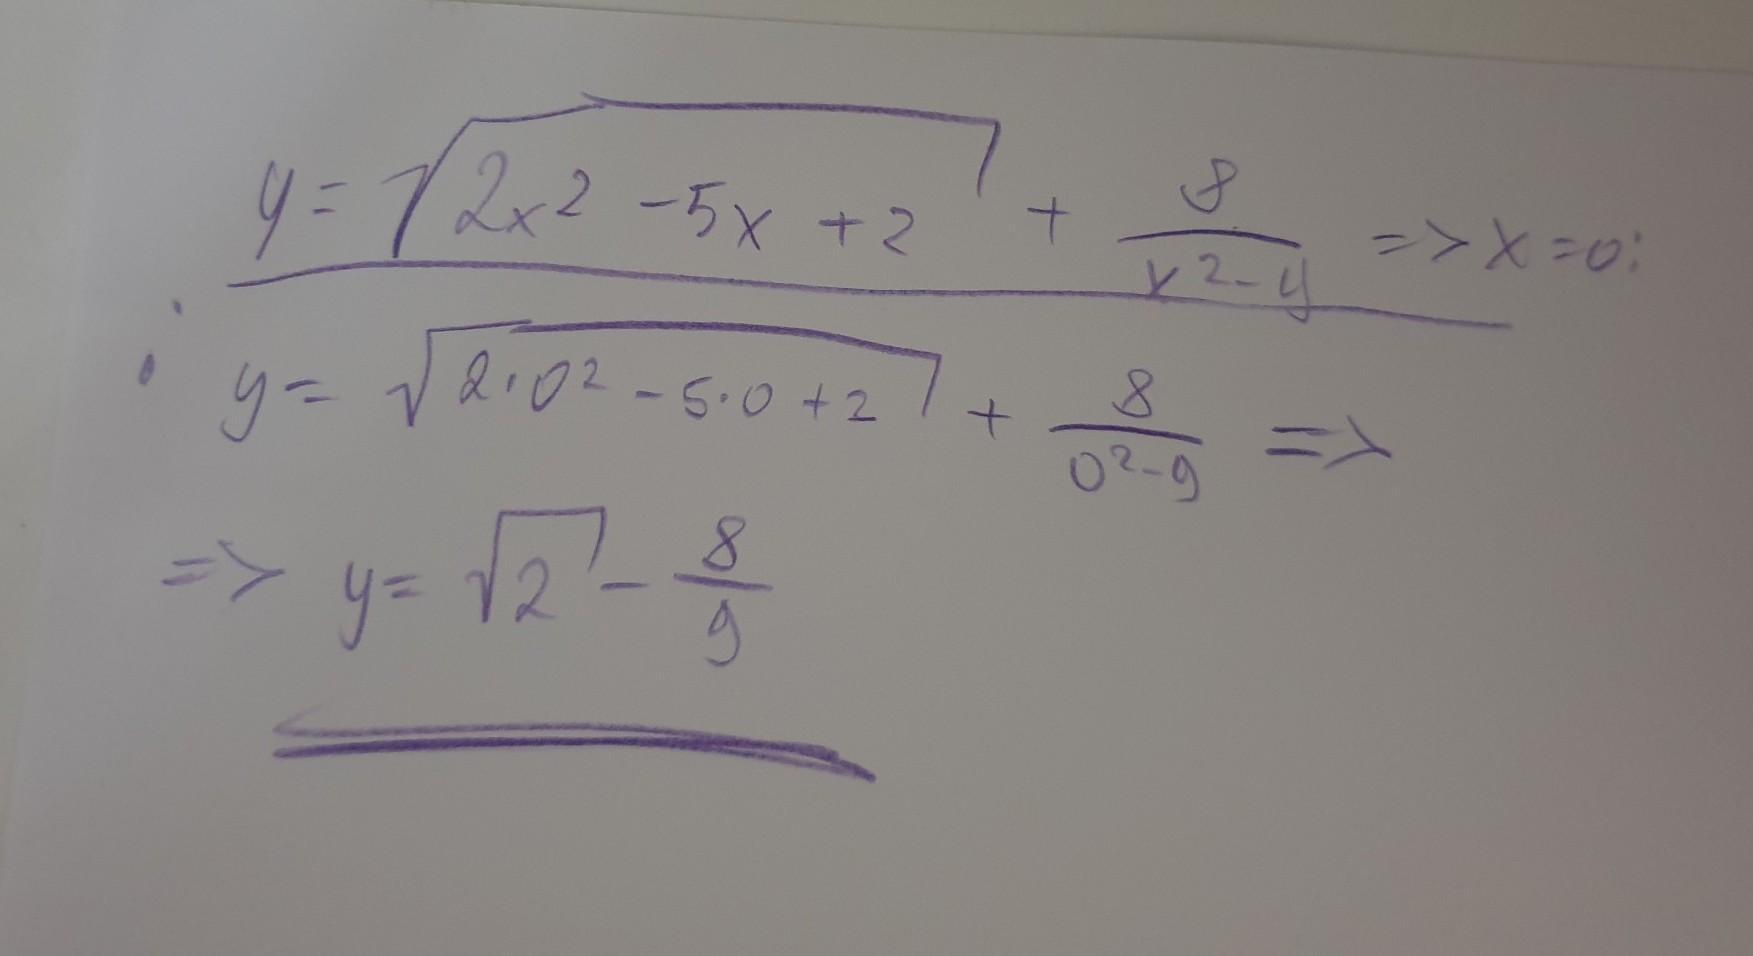 y = √(2x² - 5x + 2) + 8/(x² - y) => x = 0:
y = √(2·0² - 5·0 + 2) + 8/(0² - 9) =>
=> y = √2 - 8/9